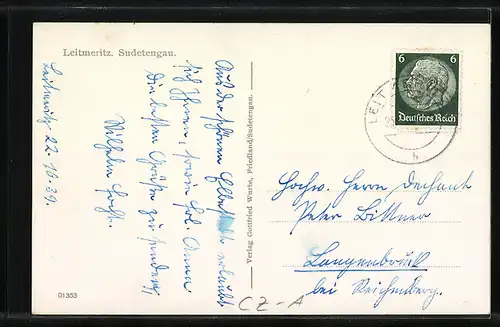 Leitmeritz. Sudetengau.
Leitmeritz 22.10.39.
Aus der schönen Elbestadt erlaubt
sich Ihnen, sowie Frl. Anna
Die besten Grüße zu senden
Wilhelm
Verlag Gottfried Wurbs, Friedland/Sudetengau.
01353
6 6
Deutsches Reich
LEIT
b
Hochw. Herrn Dechant
Peter Bittner
Langenbruck
bei Reichenberg.
CZ-A